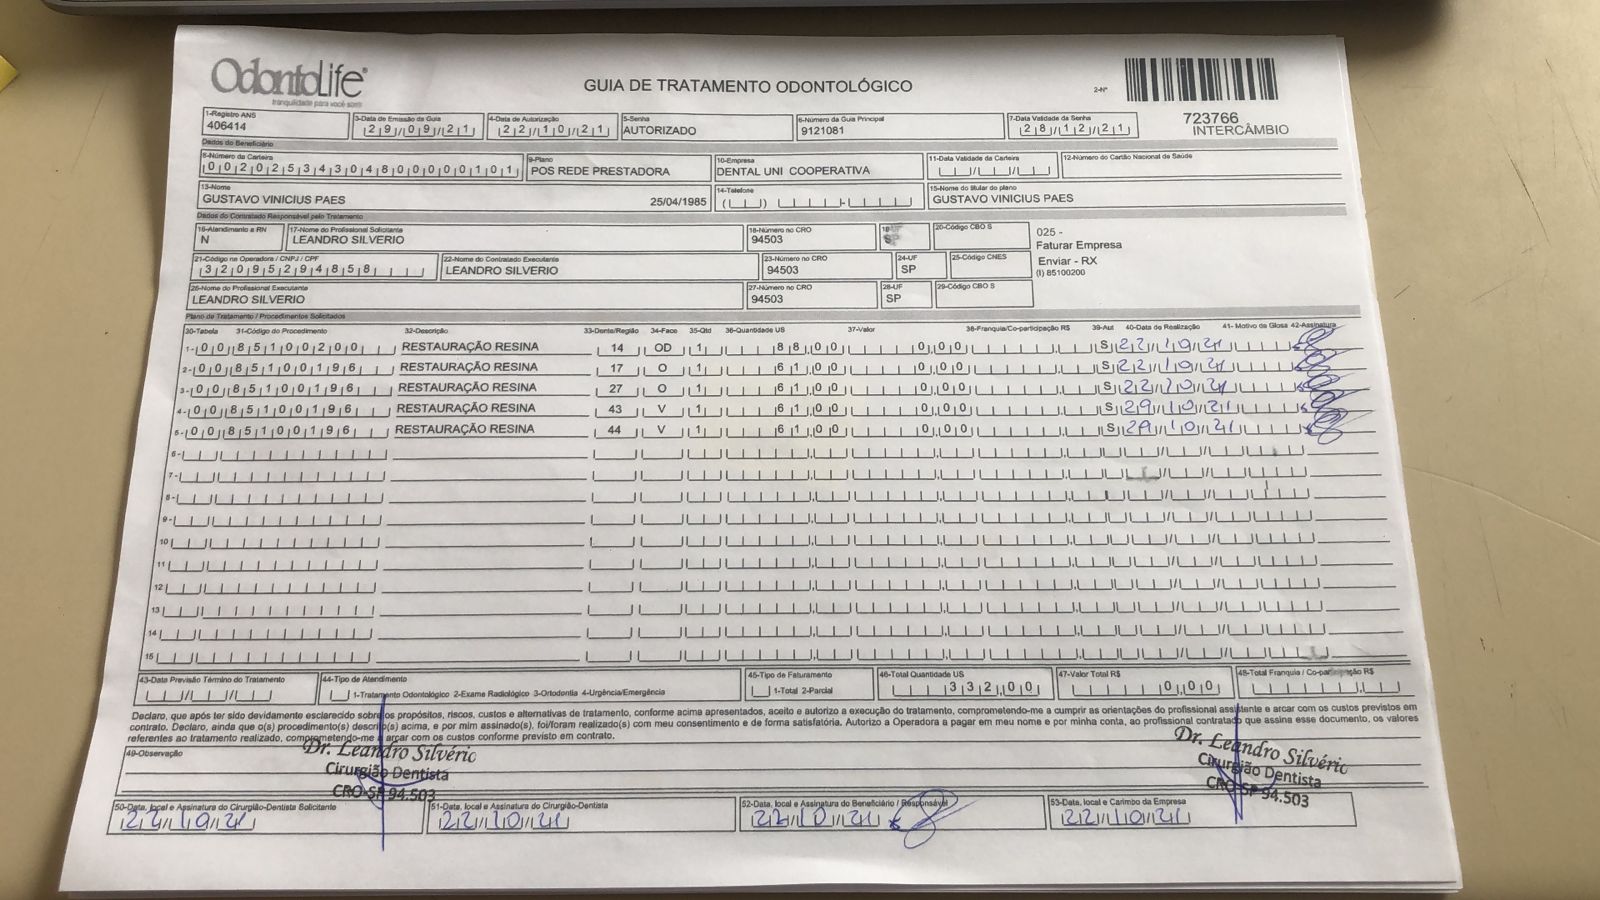 OdontoLife®
tranquilidade para você sorrir
GUIA DE TRATAMENTO ODONTOLÓGICO
2-Nº
723766
INTERCÂMBIO
1-Registro ANS 3-Data de Emissão da Guia 4-Data de Autorização 5-Senha 6-Número da Guia Principal 7-Data Validade da Senha
406414 29/09/21 22/10/21 AUTORIZADO 9121081 28/12/21
Dados do Beneficiário
8-Número da Carteira 9-Plano 10-Empresa 11-Data Validade da Carteira 12-Número do Cartão Nacional de Saúde
00202534304800000101 POS REDE PRESTADORA DENTAL UNI COOPERATIVA
13-Nome 14-Telefone 15-Nome do titular do plano
GUSTAVO VINICIUS PAES 25/04/1985 GUSTAVO VINICIUS PAES
Dados do Contratado Responsável pelo Tratamento
16-Atendimento a RN 17-Nome do Profissional Solicitante 18-Número no CRO 20-Código CBO S
N LEANDRO SILVERIO 94503 SP
025 -
Faturar Empresa
Enviar - RX
(I) 85100200
21-Código na Operadora / CNPJ / CPF 22-Nome do Contratado Executante 23-Número no CRO 24-UF 25-Código CNES
32095294858 LEANDRO SILVERIO 94503 SP
26-Nome do Profissional Executante 27-Número no CRO 28-UF 29-Código CBO S
LEANDRO SILVERIO 94503 SP
Plano de Tratamento / Procedimentos Solicitados
30-Tabela 31-Código do Procedimento 32-Descrição 33-Dente/Região 34-Face 35-Qtd 36-Quantidade US 37-Valor 38-Franquia/Co-participação R$ 39-Aut 40-Data de Realização 41- Motivo da Glosa 42-Assinatura
1- 00 85100200 RESTAURAÇÃO RESINA 14 OD 1 88,00 0,00 S 22/10/21
2- 00 85100196 RESTAURAÇÃO RESINA 17 O 1 61,00 0,00 S 22/10/21
3- 00 85100196 RESTAURAÇÃO RESINA 27 O 1 61,00 0,00 S 22/10/21
4- 00 85100196 RESTAURAÇÃO RESINA 43 V 1 61,00 0,00 S 29/10/21
5- 00 85100196 RESTAURAÇÃO RESINA 44 V 1 61,00 0,00 S 29/10/21
6-
7-
8-
9-
10
11
12
13
14
15
43-Data Previsão Término do Tratamento 44-Tipo de Atendimento 45-Tipo de Faturamento 46-Total Quantidade US 47-Valor Total R$ 48-Total Franquia / Co-participação R$
1-Tratamento Odontológico 2-Exame Radiológico 3-Ortodontia 4-Urgência/Emergência 1-Total 2-Parcial 332,00 0,00
Declaro, que após ter sido devidamente esclarecido sobre os propósitos, riscos, custos e alternativas de tratamento, conforme acima apresentados, aceito e autorizo a execução do tratamento, comprometendo-me a cumprir as orientações do profissional assistente e arcar com os custos previstos em
contrato. Declaro, ainda que o(s) procedimento(s) descrito(s) acima, e por mim assinado(s), foi/foram realizado(s) com meu consentimento e de forma satisfatória. Autorizo a Operadora a pagar em meu nome e por minha conta, ao profissional contratado que assina esse documento, os valores
referentes ao tratamento realizado, comprometendo-me a arcar com os custos conforme previsto em contrato.
49-Observação
Dr. Leandro Silvério
Cirurgião Dentista
CRO-SP 94.503
Dr. Leandro Silvério
Cirurgião Dentista
CRO-SP 94.503
50-Data, local e Assinatura do Cirurgião-Dentista Solicitante 51-Data, local e Assinatura do Cirurgião-Dentista 52-Data, local e Assinatura do Beneficiário / Responsável 53-Data, local e Carimbo da Empresa
22/10/21 22/10/21 22/10/21 22/10/21